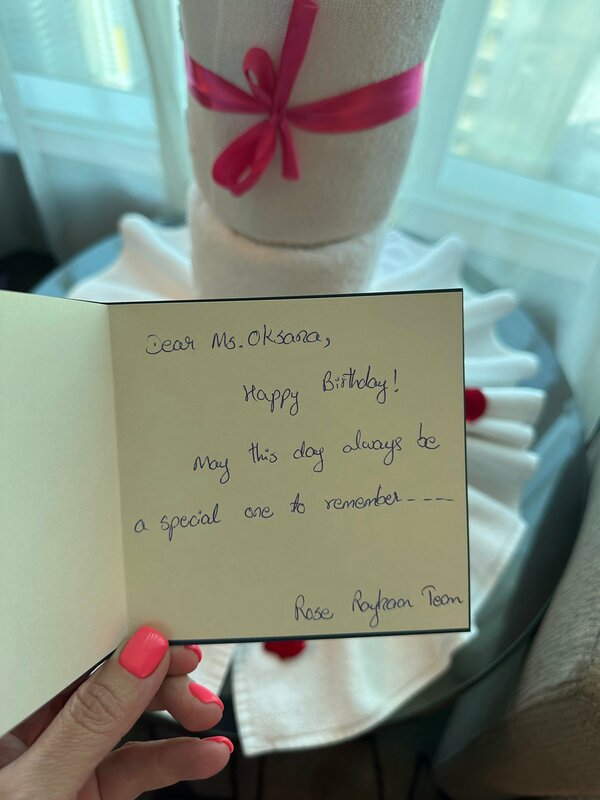 Dear Ms. Oksana,
Happy Birthday!
May this day always be
a special one to remember----
Rose Rayhaan Team